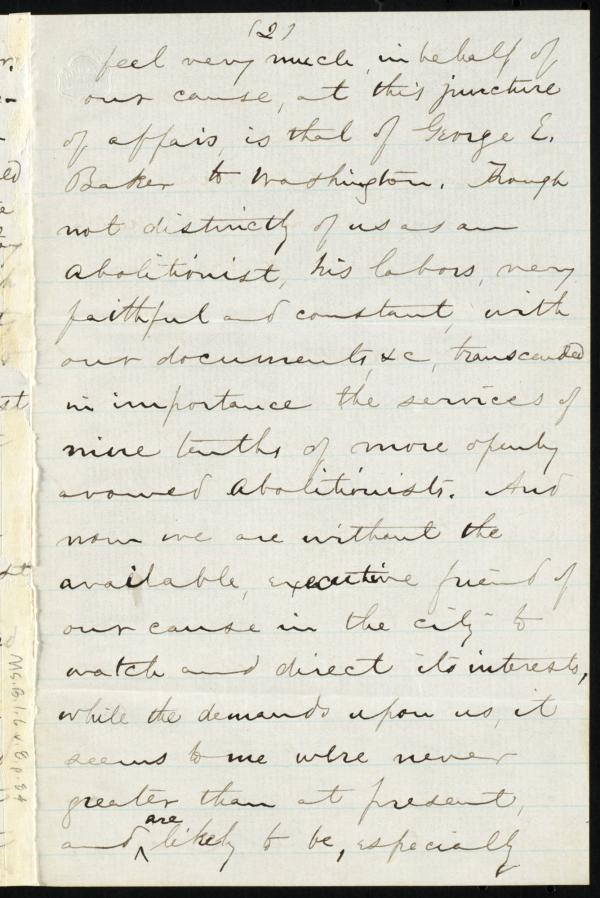 (2)
feel very much, in behalf of
our cause, at this juncture
of affairs, is that of George E.
Baker to Washington. Though
not distinctly of us as an
Abolitionist, his labors, very
faithful and constant, with
our documents, &c, transcended
in importance the services of
nine tenths of more openly
avowed Abolitionists. And
now we are without the
available, executive friend of
our cause in the city to
watch and direct its interests,
while the demands upon us, it
seems to me were never
greater than at present,
and are likely to be, especially
Ms.B.1.6 v.8, p.84